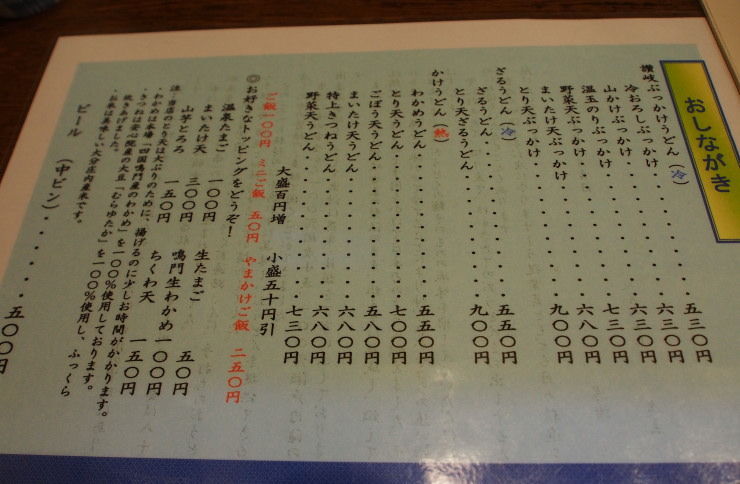 おしながき
讃岐ぶっかけうどん(冷)
冷おろしぶっかけ・・・・・・五三〇円
山かけぶっかけ・・・・・・六三〇円
温玉のりぶっかけ・・・・・・六三〇円
野菜天ぶっかけ・・・・・・七三〇円
まいたけ天ぶっかけ・・・・・・六八〇円
とり天ぶっかけ・・・・・・九〇〇円
ざるうどん(冷)
ざるうどん・・・・・・五五〇円
とり天ざるうどん・・・・・・九〇〇円
かけうどん(熱)
わかめうどん・・・・・・五五〇円
とり天うどん・・・・・・七〇〇円
ごぼう天うどん・・・・・・五八〇円
まいたけ天うどん・・・・・・六八〇円
特上きつねうどん・・・・・・六八〇円
野菜天うどん・・・・・・七三〇円
大盛百円増 小盛五十円引
ご飯一〇〇円 ミニご飯 五〇円 やまかけご飯 二五〇円
◎お好きなトッピングをどうぞ!
温泉たまご 一〇〇円 生たまご 五〇円
まいたけ天 三〇〇円 鳴門生わかめ 一〇〇円
山芋とろろ 一五〇円 ちくわ天 一五〇円
注・当店のとり天は大ぶりのために、揚げるのに少しお時間がかかります。
・わかめは本場「四国鳴門産のわかめ」を一〇〇%使用しております。
・きつねは安心院産の大豆「むらゆたか」を一〇〇%使用し、ふっくら
炊きあげました。
・お米は美味しい大分庄内産米です。
ビール (中ビン)・・・・・五〇〇円